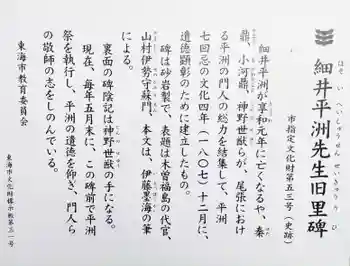 細井平洲先生旧里碑
ほそいへいしゅうせんせいきゅうりひ
市指定文化財第五三号(史跡)
細井平洲が享和元年に亡くなるや、秦
鼎、小河鼎、神野世猷らが、尾張におけ
る平洲の門人の総力を結集して、平洲
七回忌の文化四年(一八〇七)十二月に、
遺徳顕彰のために建立したもの。
碑は砂岩製で、表題は木曽福島の代官、
山村伊勢守蘇門、本文は、伊藤墨海の筆
による。
裏面の碑陰記は神野世猷の手になる。
現在、毎年五月末に、この碑前で平洲
祭を執行し、平洲の遺徳を仰ぎ、門人ら
の敬師の志をしのんでいる。
東海市教育委員会
東海市文化財標示板第三一号